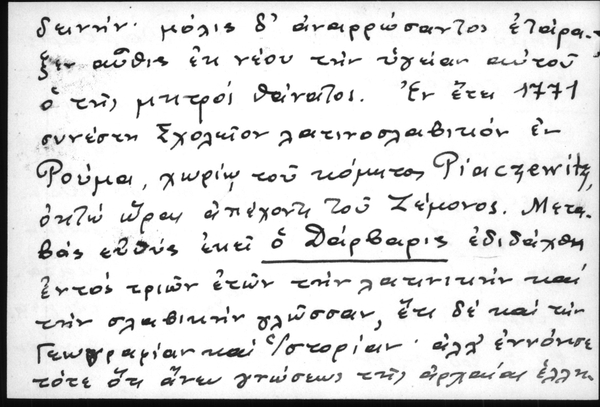 δεινήν· μόλις δ' ἀναρρώσαντος ἐτάρα-
ξεν αὖθις ἐκ νέου τὴν ὑγείαν αὐτοῦ
ὁ τῆς μητρός θάνατος. Ἐν ἔτει 1771
συνέστη Σχολεῖον λατινοσλαβικόν ἐν
Ρούμᾳ, χωρίῳ τοῦ κόμητος Piaczewitz,
ὀκτώ ὥρας ἀπέχοντι τοῦ Ζέμονος. Μετα-
βάς εὐθύς ἐκεῖ ὁ Δάρβαρις ἐδιδάχθη
ἐντός τριῶν ἐτῶν τὴν λατινικήν καί
τὴν σλαβικήν γλῶσσαν, ἔτι δέ καί τὴν
Γεωγραφίαν καί Ἱστορίαν· ἀλλ' ἐννόησε
τότε ὅτι ἄνευ γνώσεως τῆς ἀρχαίας ἑλλη-